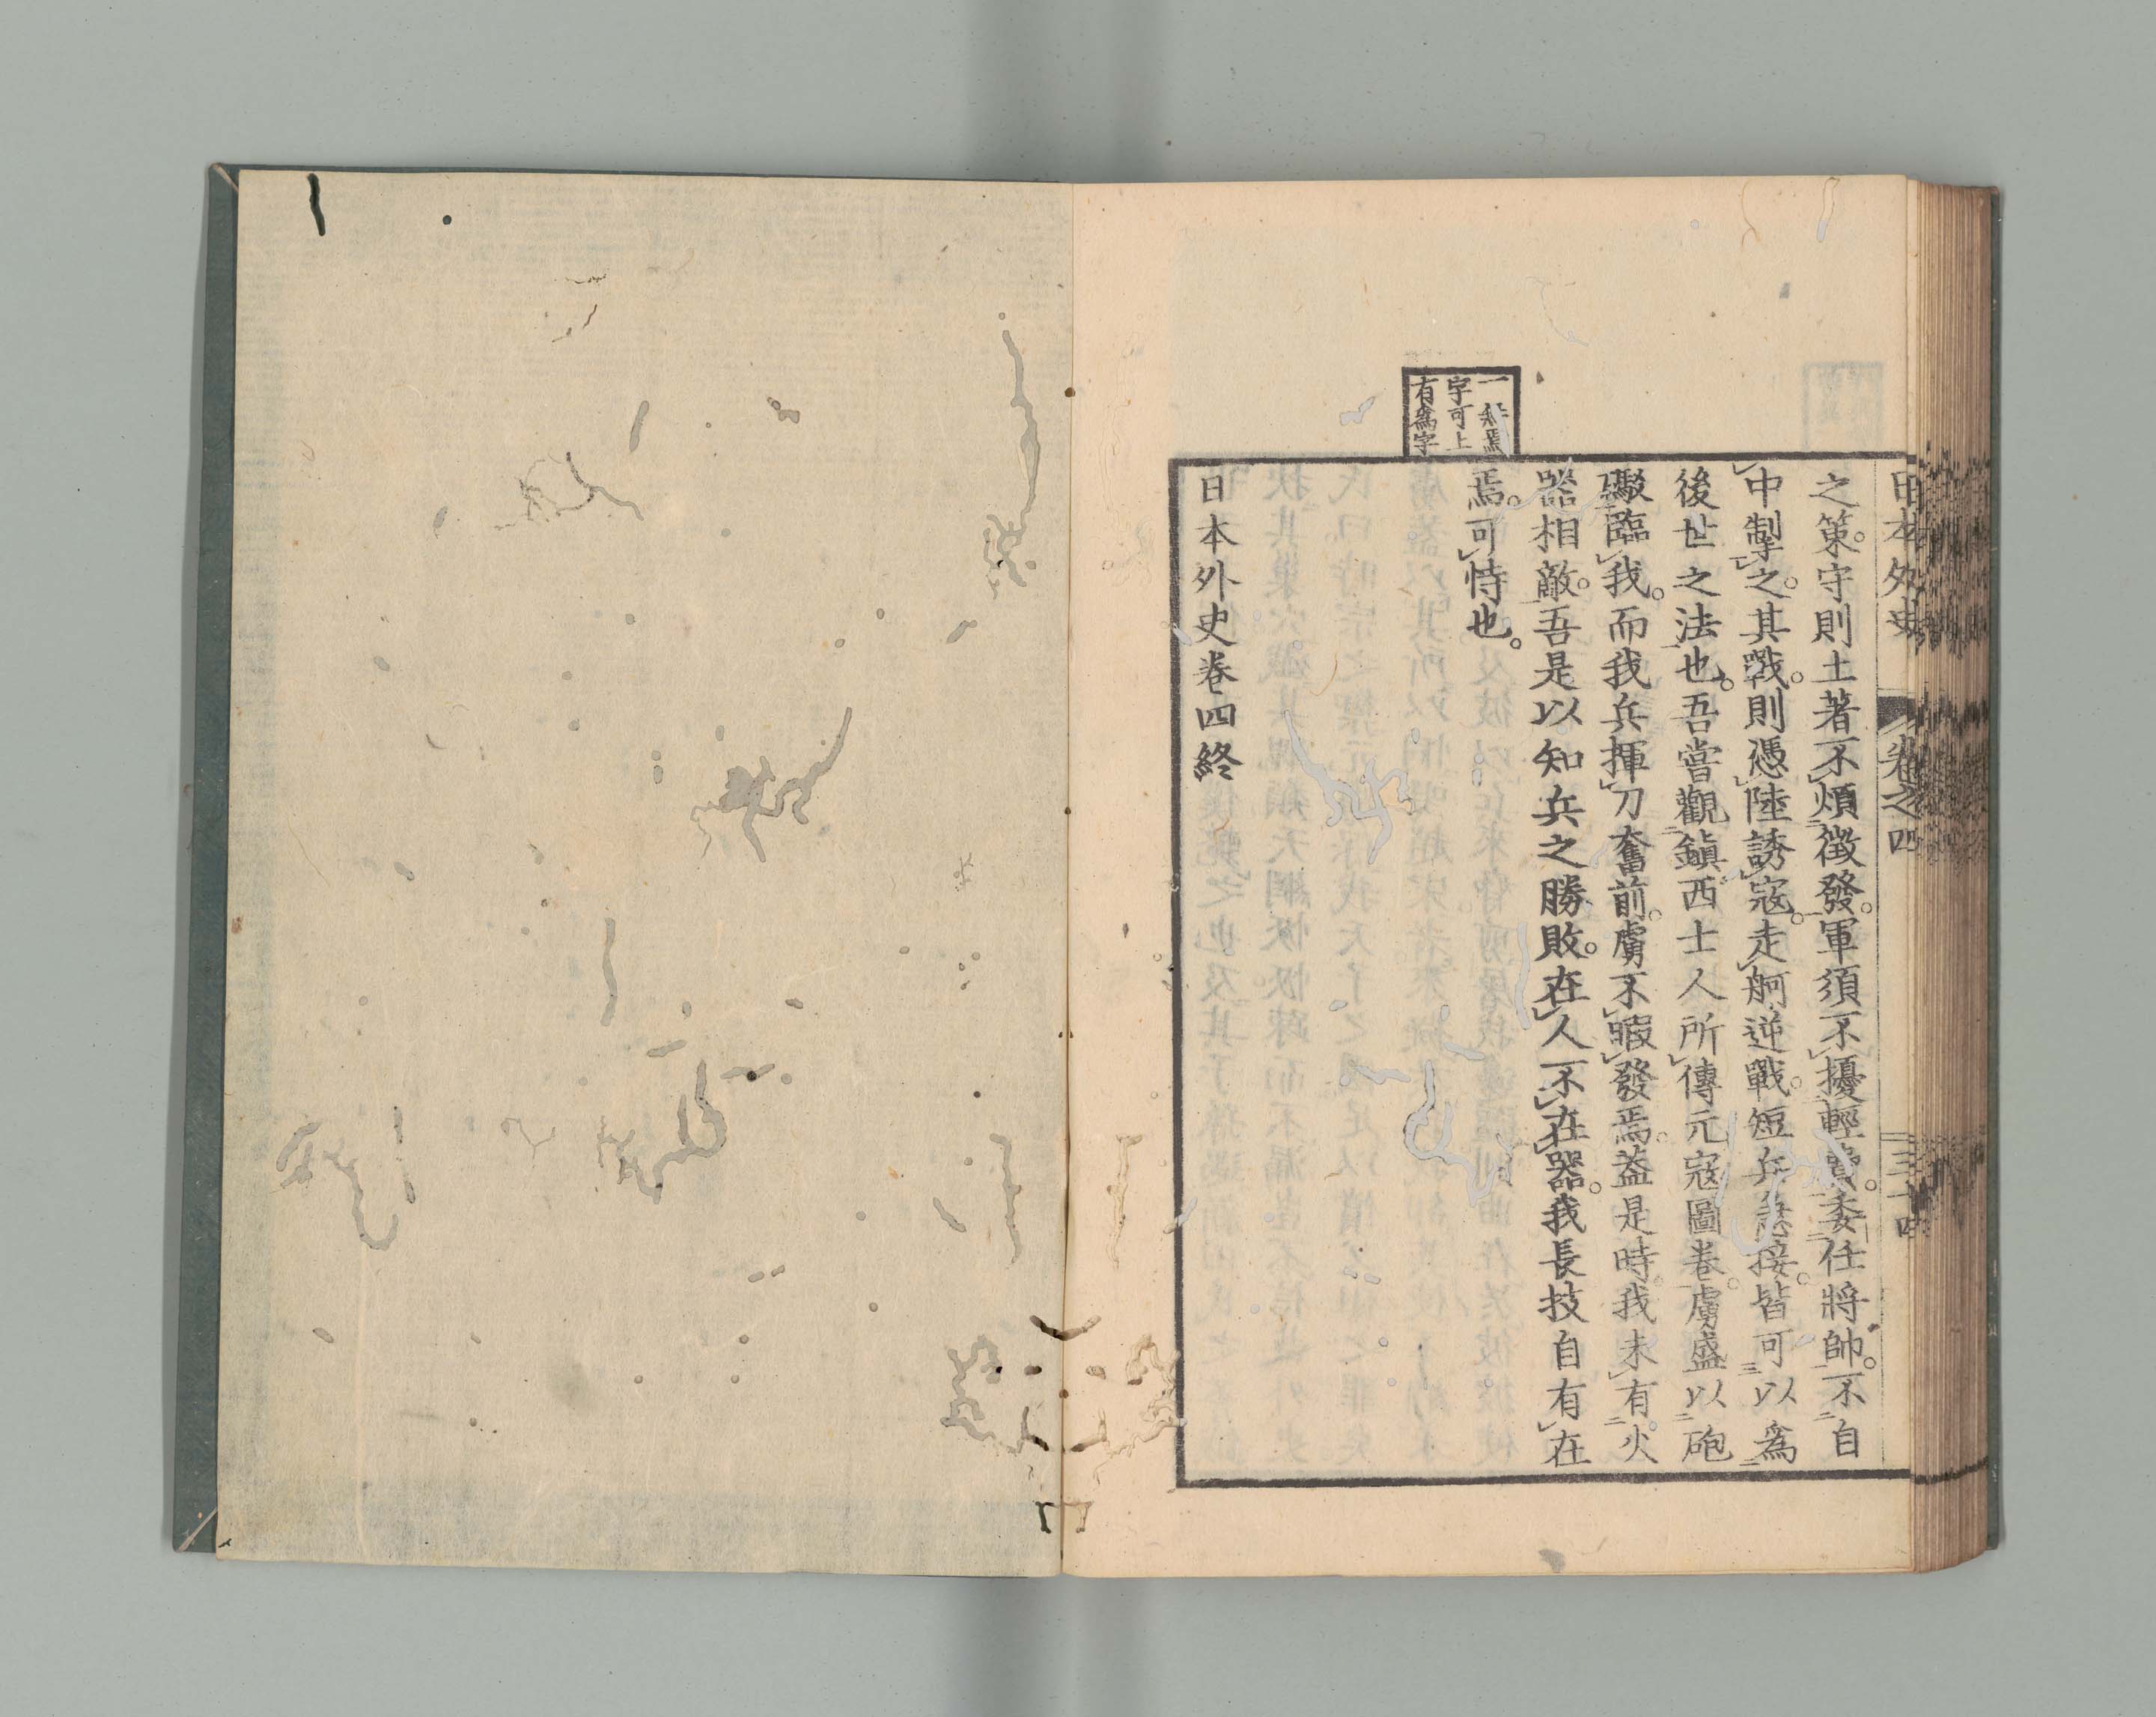 日本外史
卷之四
三十四
之策。守則土著不煩徵發。軍須不擾輕賦。委任將帥。不自
中掣之。其戰。則憑陸誘寇。走舸逆戰。短兵急接。皆可以爲
後世之法也。吾嘗觀鎭西士人所傳元寇圖卷。虜盛以砲
礮臨我。而我兵揮刀奮前。虜不暇發焉。蓋是時我未有火
器相敵。吾是以知兵之勝敗。在人不在器。我長技自有在
焉。可恃也。
日本外史卷四終
一
字可上
有爲字